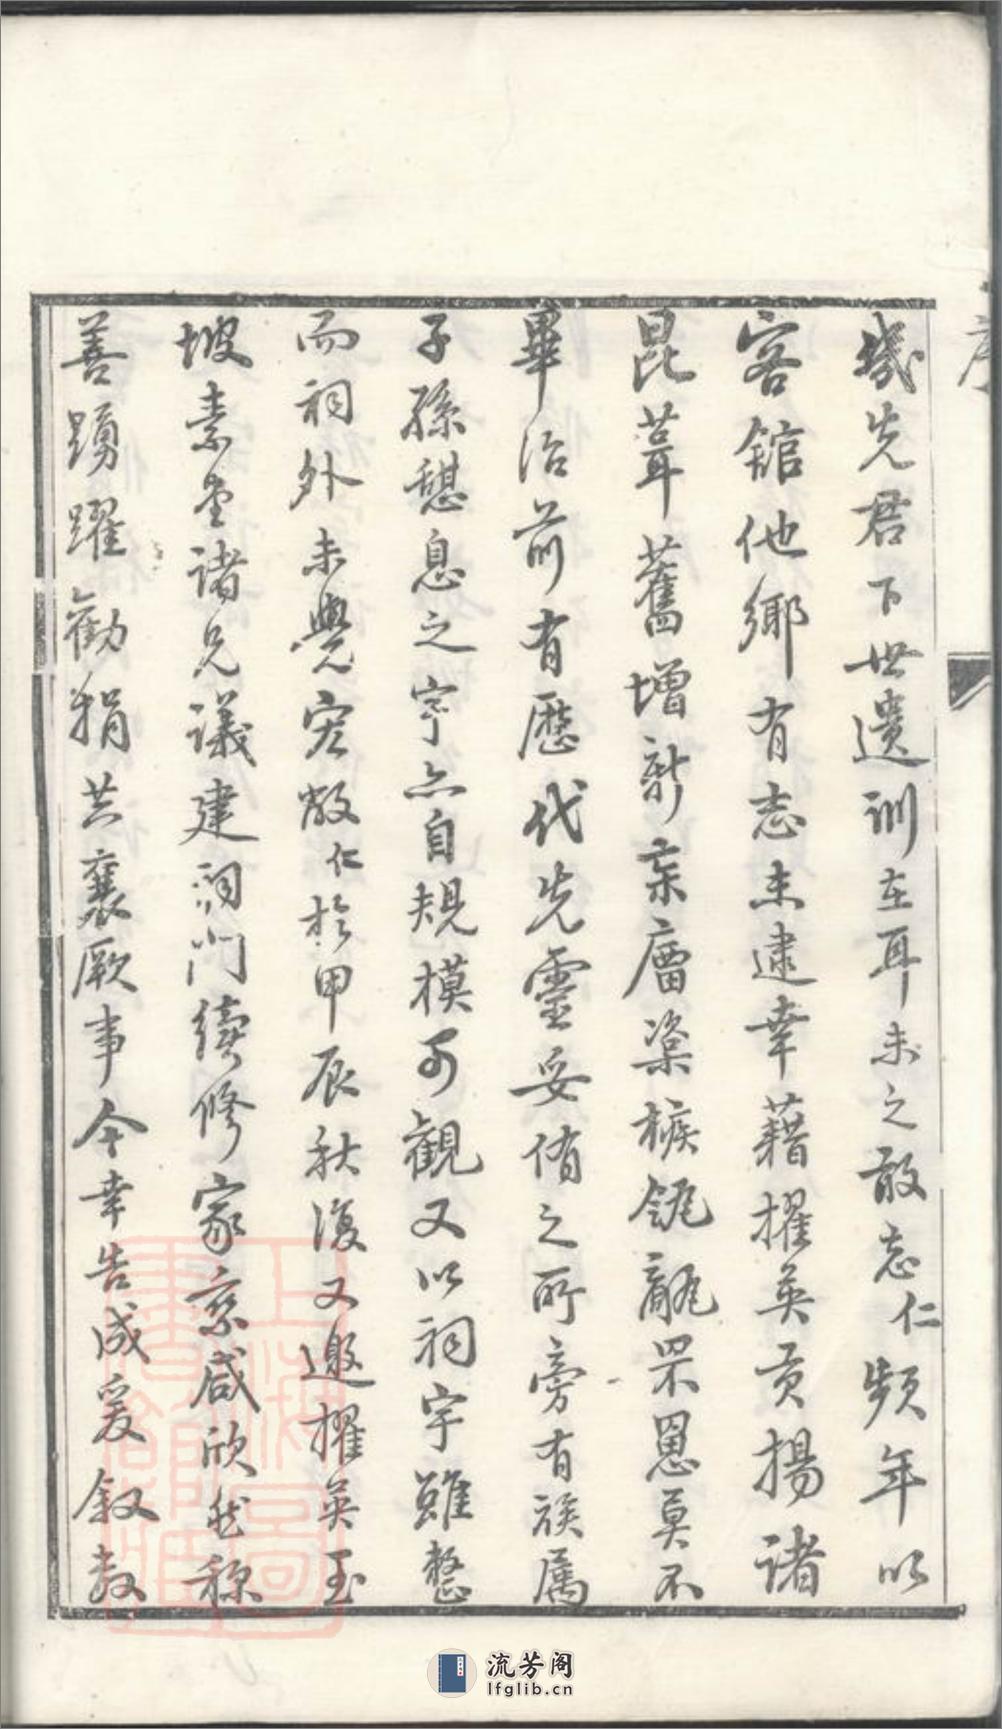 幾先君下世遺訓在耳未之敢忘仁頻年以
客館他鄉有志未逮幸藉擢英貢揚諸
昆葺舊增新宗廇粢㮤甋甂罘罳莫不
畢治前有歷代先靈妥侑之所旁有族属
子孫憇息之宇亦自規模可觀又以祠宇雖整
而祠外未覺宏敞仁於甲辰秋復又邀擢英玉
坡素堂諸兄議建祠門續修家乘咸欣然称
善踴躍勸捐共襄厥事今幸告成爰叙數
序
上海圖書館藏
流芳阁
lfglib.cn